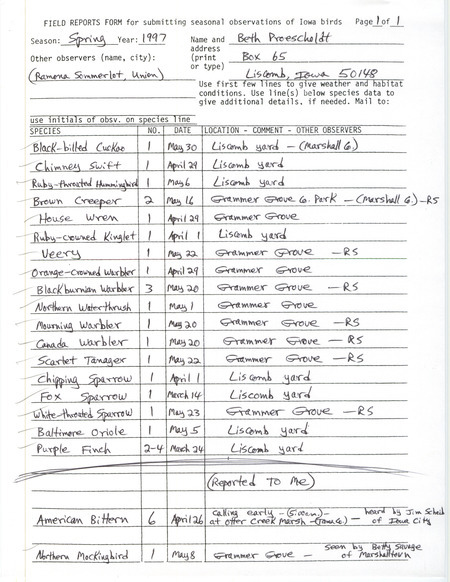 FIELD REPORTS FORM for submitting seasonal observations of Iowa birds Page 1 of 1
Season: Spring Year: 1997 Name and Beth Proescholdt
address
Other observers (name, city): (print Box 65
or type)
(Ramona Sommerlot, Union) Liscomb, Iowa 50148
Use first few lines to give weather and habitat
conditions. Use line(s) below species data to
give additional details, if needed. Mail to:
use initials of obsv. on species line
SPECIES NO. DATE LOCATION - COMMENT - OTHER OBSERVERS
Black-billed Cuckoo 1 May 30 Liscomb yard - (Marshall Co.)
Chimney Swift 1 April 29 Liscomb yard
Ruby-throated Hummingbird 1 May 6 Liscomb yard
Brown Creeper 2 May 16 Grammer Grove Co. Park - (Marshall Co.) - RS
House Wren 1 April 29 Grammer Grove
Ruby-crowned Kinglet 1 April 1 Liscomb yard
Veery 1 May 22 Grammer Grove - RS
Orange-crowned Warbler 1 April 29 Grammer Grove
Blackburnian Warbler 3 May 20 Grammer Grove - RS
Northern Waterthrush 1 May 1 Grammer Grove
Mourning Warbler 1 May 20 Grammer Grove - RS
Canada Warbler 1 May 20 Grammer Grove - RS
Scarlet Tanager 1 May 22 Grammer Grove - RS
Chipping Sparrow 1 April 1 Liscomb yard
Fox Sparrow 1 March 14 Liscomb yard
White-throated Sparrow 1 May 23 Grammer Grove - RS
Baltimore Oriole 1 May 5 Liscomb yard
Purple Finch 2-4 March 24 Liscomb yard
(Reported To Me)
American Bittern 6 April 26 calling early - - heard by Jim
at Otter Creek Marsh - (Tama Co.) - of Iowa City
Northern Mockingbird 1 May 8 Grammer Grove - seen by Betty Savage
of Marshalltown